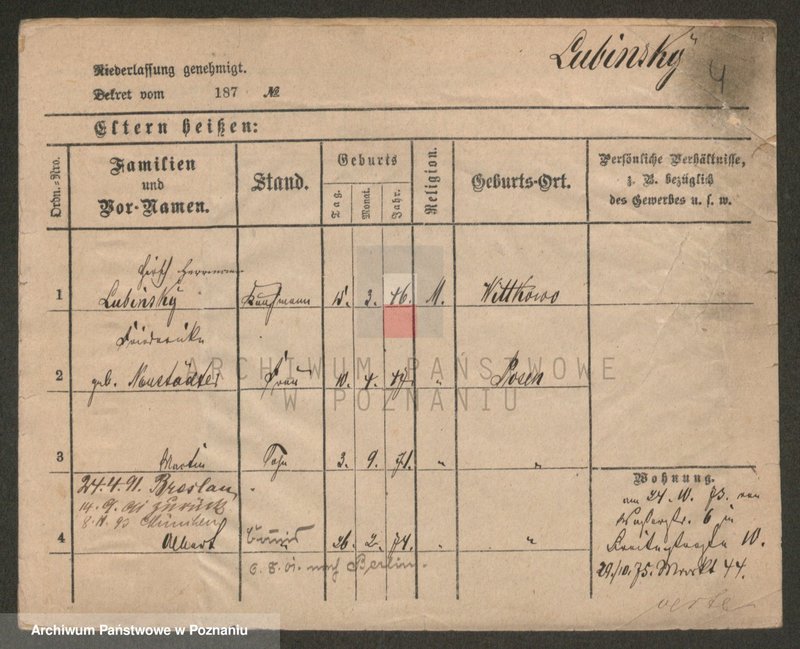 Lubinsky
4
Niederlassung genehmigt.
Dekret vom 187 №
Eltern heißen:
Ordn.-Nro.
Familien und Vor-Namen.
Stand.
Geburts
Tag. Monat. Jahr.
Religion.
Geburts-Ort.
Persönliche Verhältnisse, z. B. bezüglich des Gewerbes u. s. w.
Hirsch Herrmann
1 Lubinsky Kaufmann 15. 3. 46. M. Wittkowo
Friederike
2 geb. Neustädter Frau 10. 4. 47. " Posen
3 Martin Sohn 3. 9. 71. " "
24.4.91. Breslau
14.9.91 zurück
8.11.93 München
4 Albert 26. 2. 74. " "
6.8.01. nach Berlin.
Wohnung.
am 24.10.73. von
6 in
10.
29./10.75. Markt 44.
verte
ARCHIWUM PAŃSTWOWE
W POZNANIU
Archiwum Państwowe w Poznaniu